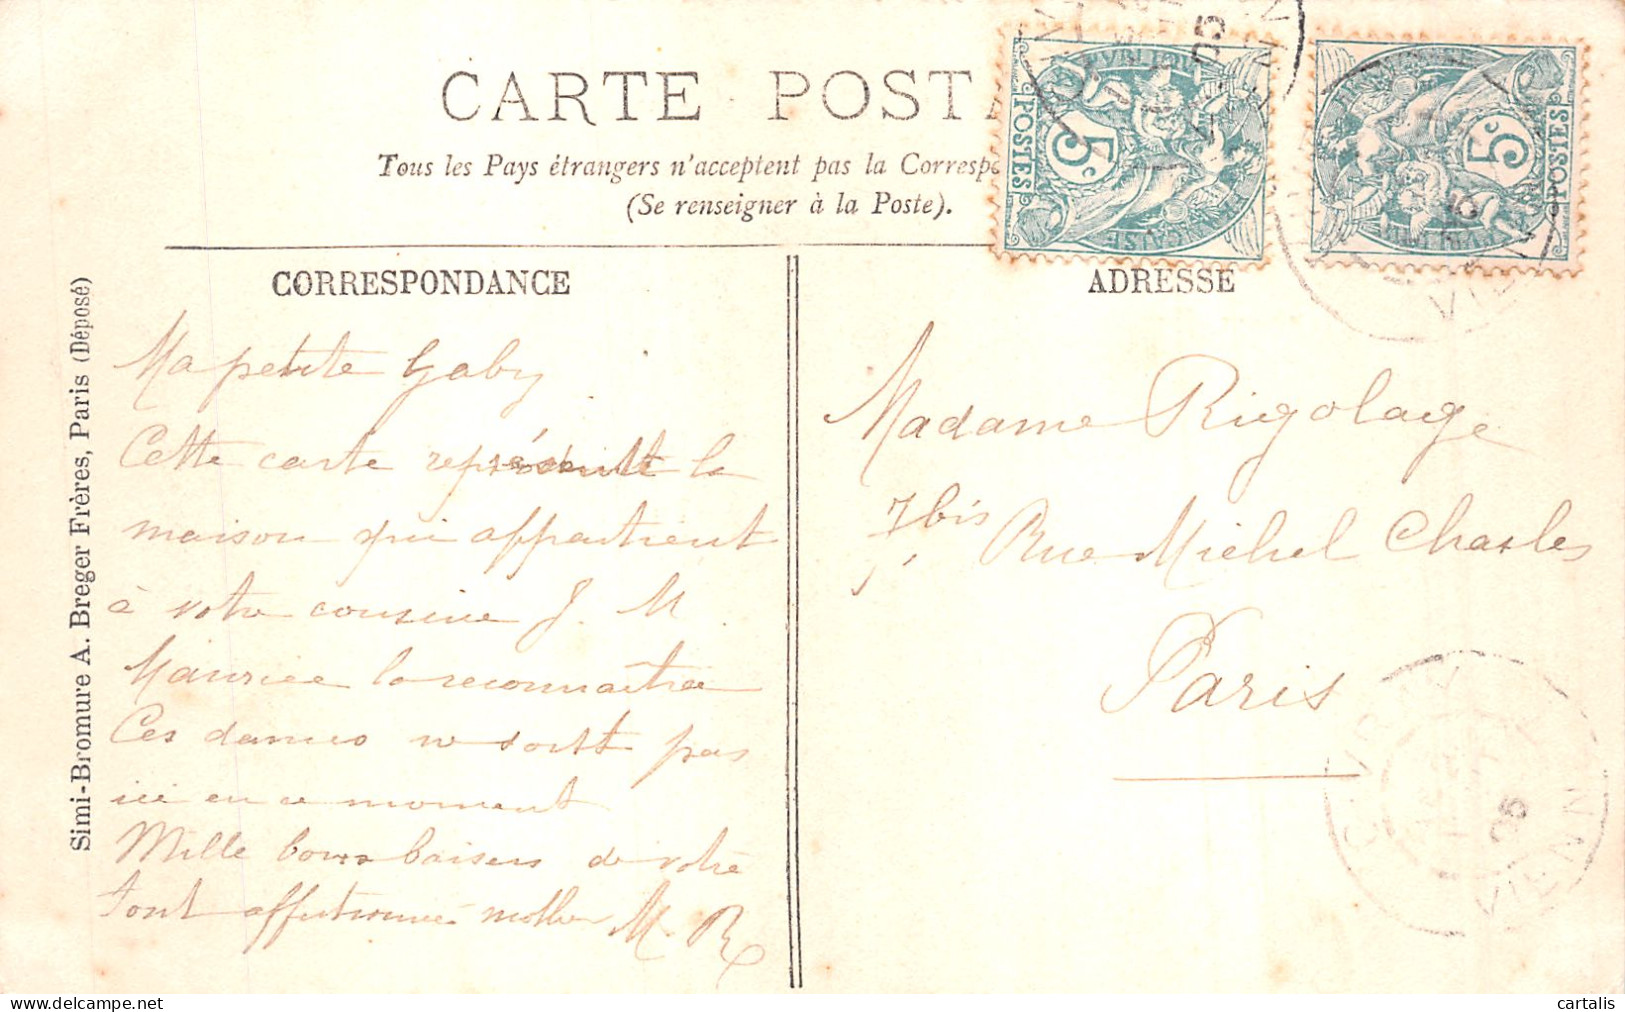 CARTE POST
Tous les Pays étrangers n'acceptent pas la Corresp
(Se renseigner à la Poste).
CORRESPONDANCE
ADRESSE
Simi-Bromure A. Breger Frères, Paris (Déposé)
Ma petite Gaby
Cette carte représente la
maison qui appartient
à votre cousine J. M.
Maurice la reconnaitra
Ces dames ne sont pas
ici en ce moment
Mille bons baisers de votre
tout affectionnée mother M. R
Madame Rigolage
7 bis Rue Michel Charles
Paris
POSTES
5c
FRANÇAISE
POSTES
5c
05
VIENN
05
cartalis